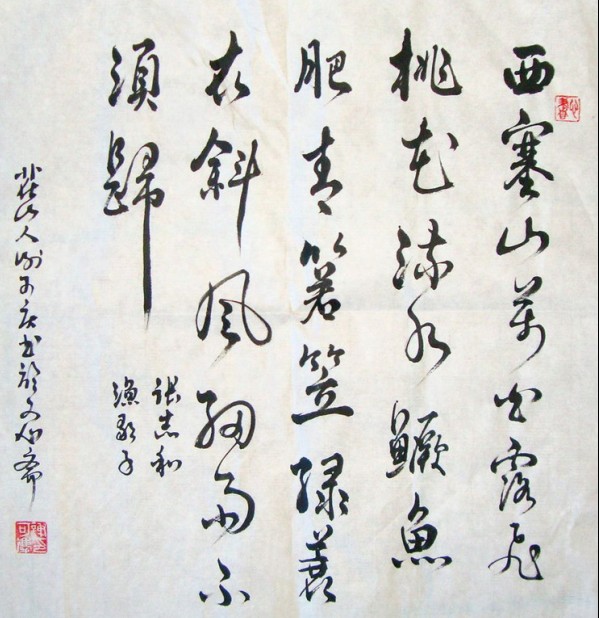 西塞山前白露飛
桃花流水鱖魚
肥青箬笠緑蓑
衣斜風細雨不
須歸
張志和
漁歌子
山人 可 书於文 斋